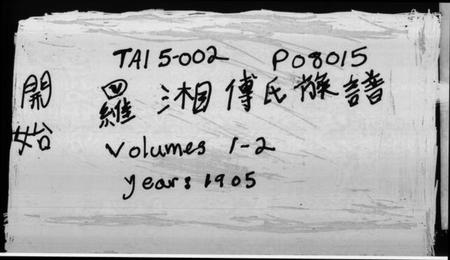 TAI 5-002 P08015
開始
羅湘傅氏族譜
Volumes 1-2
year: 1905